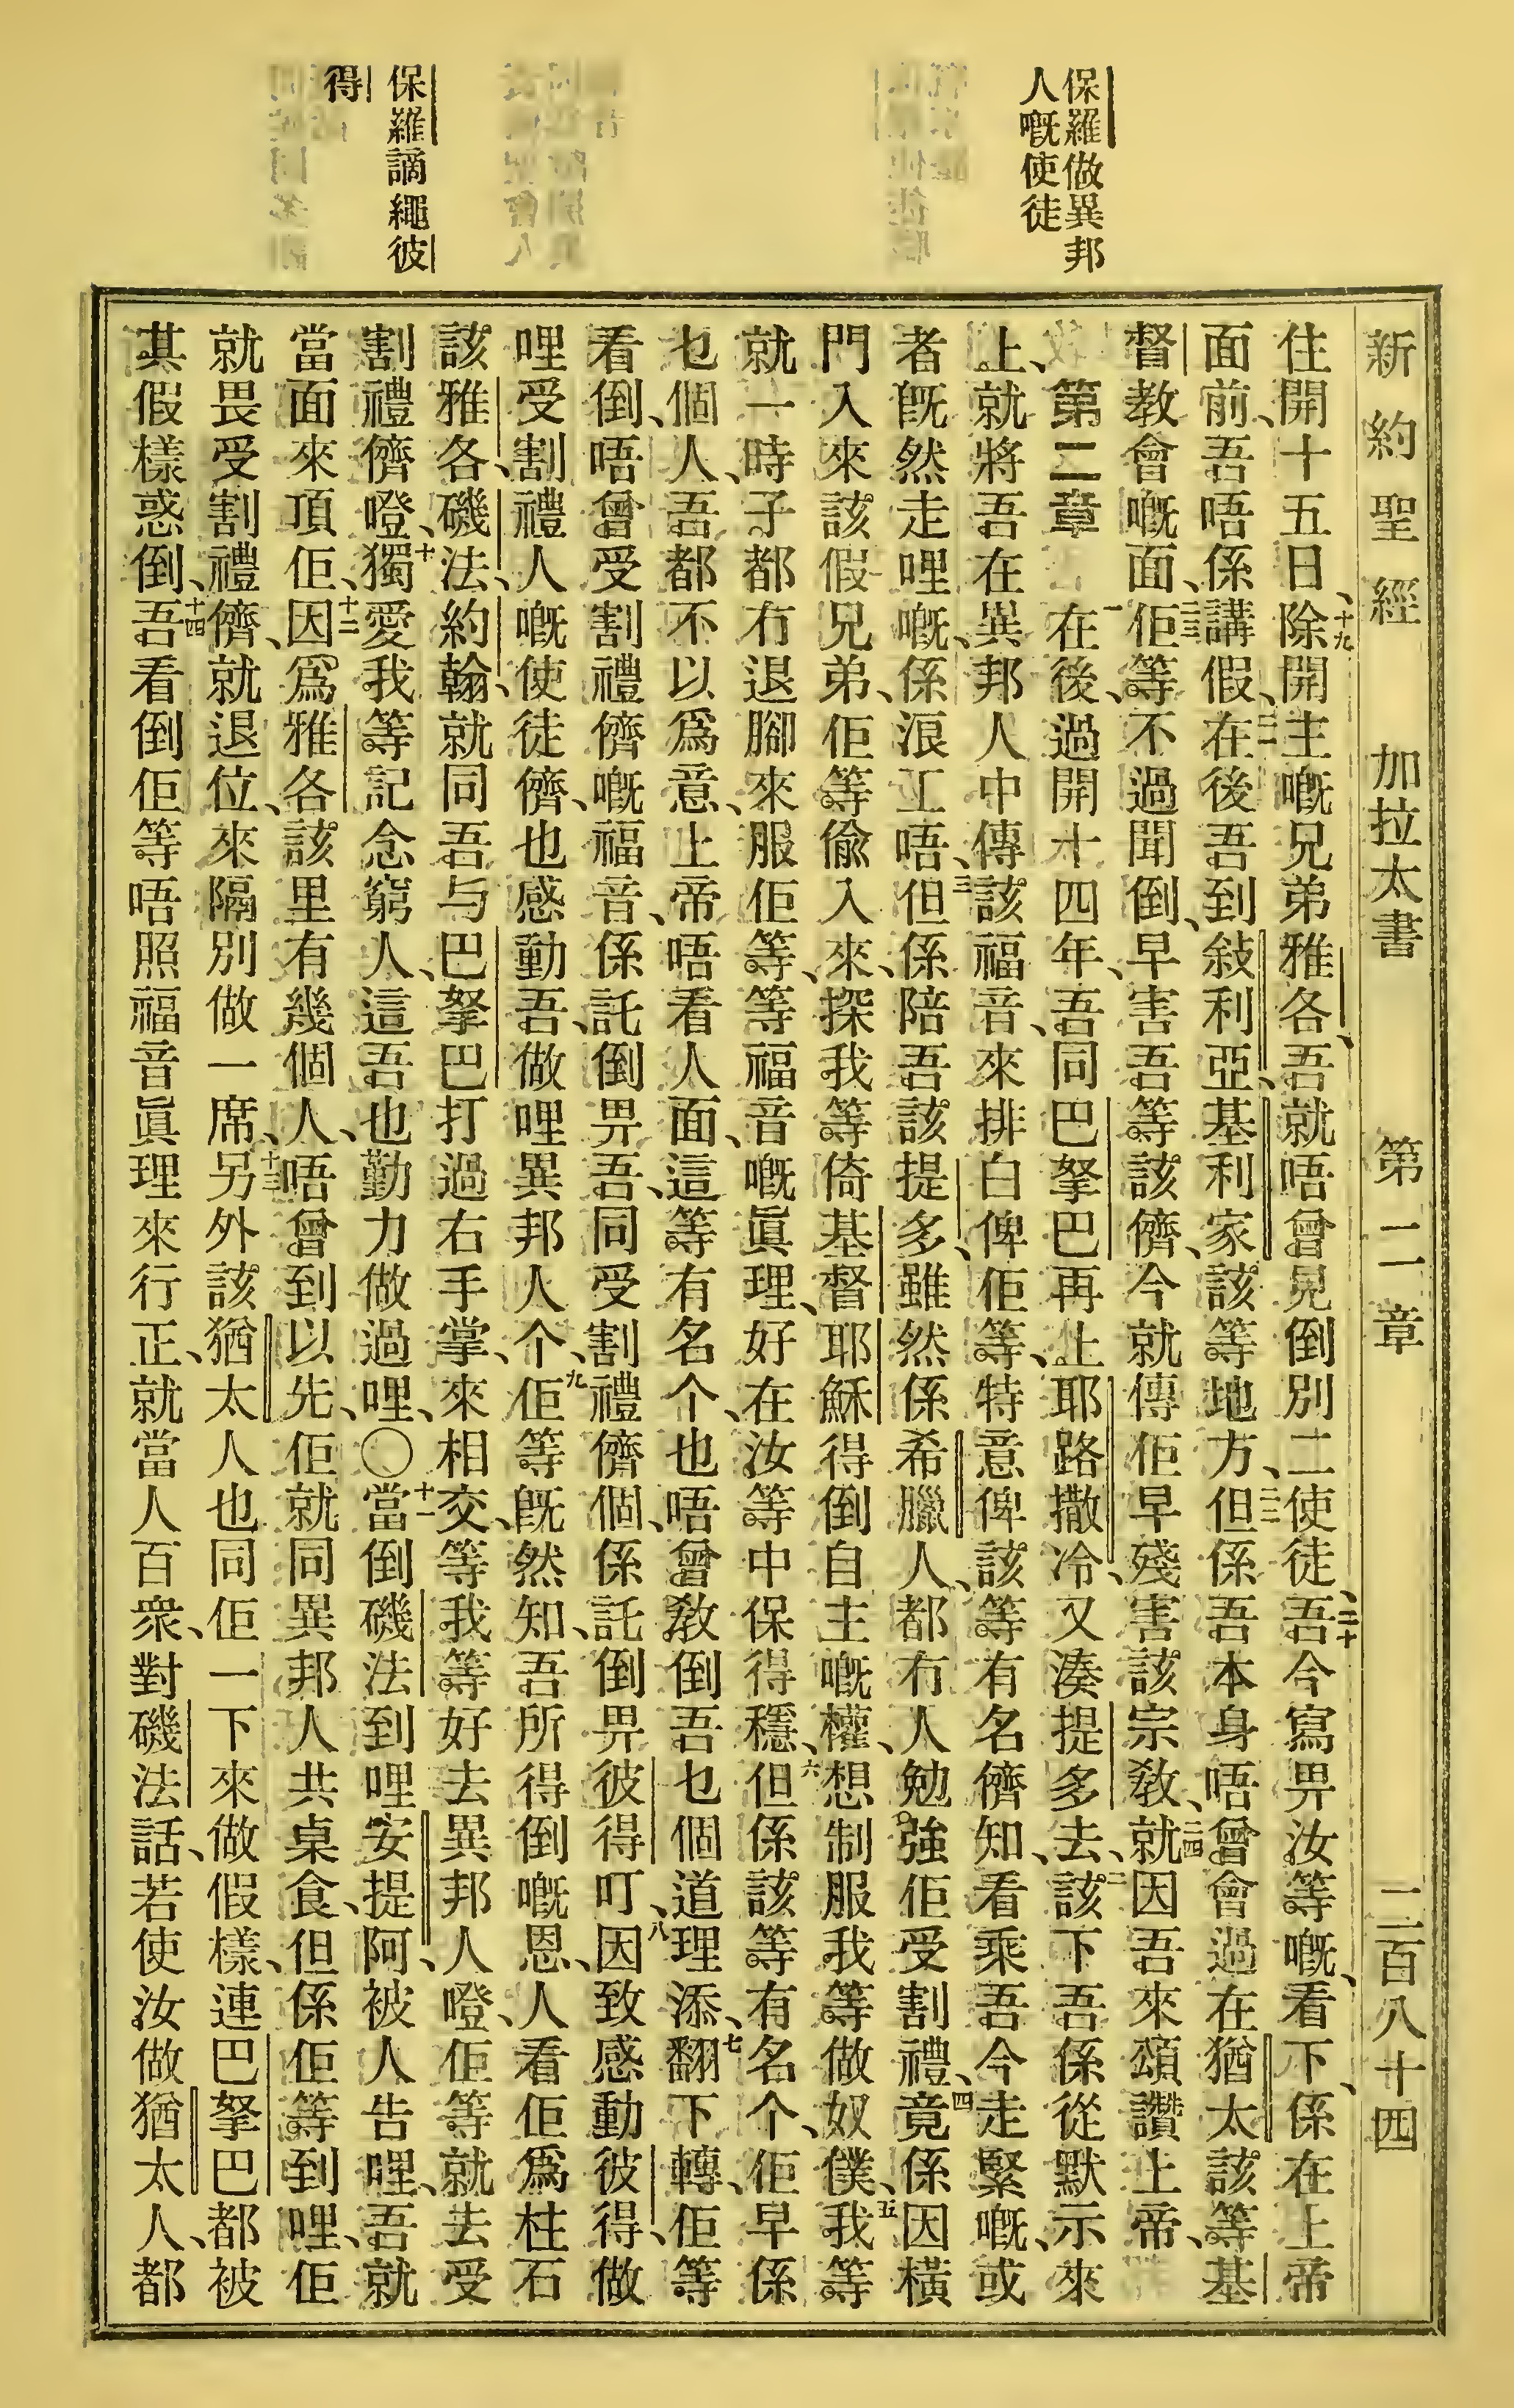 保羅做異邦
人嘅使徒
保羅謫繩彼
得
新約聖經 加拉太書 第二章 二百八十四
住開十五日、十九除開主嘅兄弟雅各、吾就唔曾見倒別二使徒、二十吾今寫畀汝等嘅、看下、係在上帝
面前、吾唔係講假、二一在後吾到敍利亞、基利家該等地方、二二但係吾本身唔曾會過在猶太該等基
督教會嘅面、二三佢等不過聞倒、早害吾等該儕、今就傳佢早殘害該宗教、二四就因吾來頌讚上帝、
第二章 一在後、過開十四年、吾同巴拏巴再上耶路撒冷、又湊提多去、二該下吾係從默示來
上、就將吾在異邦人中傳該福音、來排白俾佢等、特意俾該等有名儕知、看乘吾今走緊嘅、或
者旣然走哩嘅、係浪工唔、三但係陪吾該提多、雖然係希臘人、都冇人勉強佢受割禮、四竟係因橫
門入來該假兄弟、佢等偸入來、探我等倚基督耶穌得倒自主嘅權、想制服我等做奴僕、五我等
就一時子都冇退腳來服佢等、等福音嘅眞理、好在汝等中保得穩、六但係該等有名个、佢早係
乜個人、吾都不以爲意、上帝唔看人面、這等有名个、也唔曾敎倒吾乜個道理添、七翻下轉、佢等
看倒、唔曾受割禮儕嘅福音、係託倒畀吾、同受割禮儕個、係託倒畀彼得叮、八因致感動彼得、做
哩受割禮人嘅使徒儕、也感動吾、做哩異邦人个、九佢等旣然知、吾所得倒嘅恩、人看佢爲柱石
該雅各、磯法、約翰、就同吾与巴拏巴打過右手掌、來相交、等我等好去異邦人噔、佢等就去受
割禮儕噔、十獨愛我等記念窮人、這吾也勤力做過哩、〇十一當倒磯法到哩安提阿、被人告哩、吾就
當面來頂佢、十二因爲雅各該里有幾個人、唔曾到以先、佢就同異邦人共桌食、但係佢等到哩、佢
就畏受割禮儕、就退位、來隔別做一席、十三另外該猶太人也同佢一下來做假樣、連巴拏巴都被
其假樣惑倒、十四吾看倒佢等唔照福音眞理來行正、就當人百衆、對磯法話、若使汝做猶太人、都